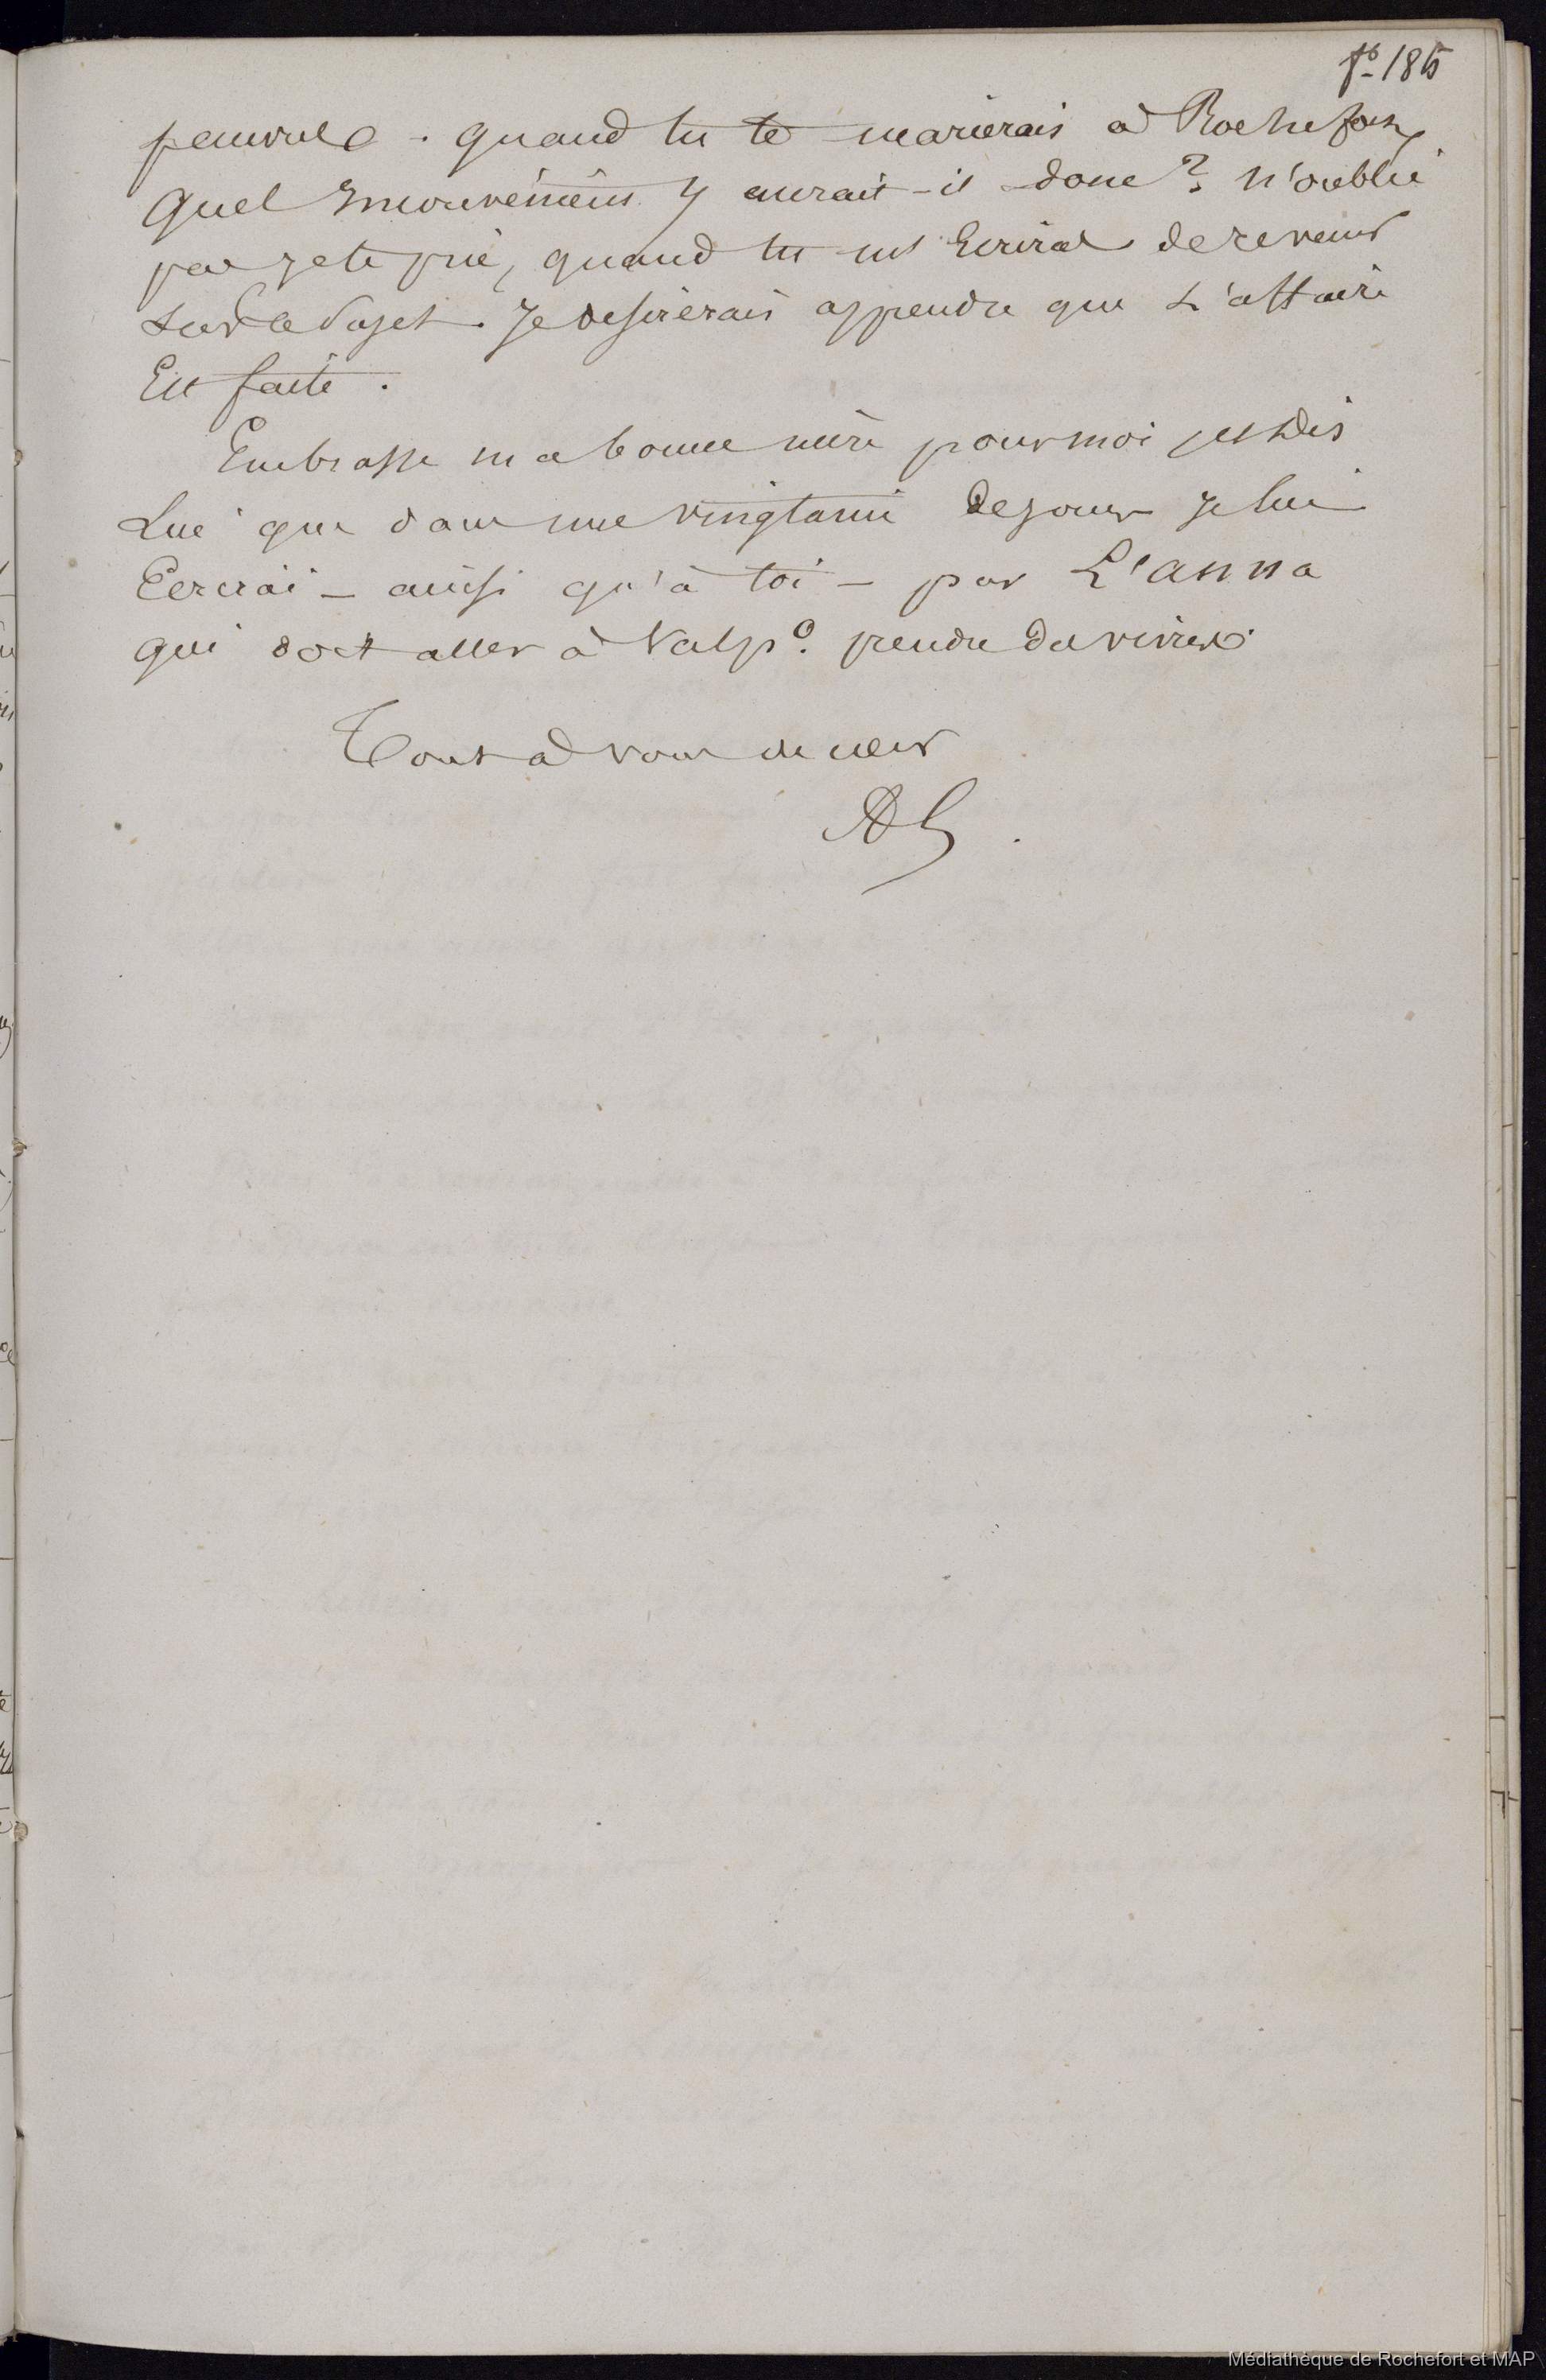 fo 185
pauvre. quand tu te marierais à Rochefort,
quel inconvénient y aurait-il donc? n'oublie
pas je te prie, quand tu m'Ecriras de revenir
sur ce sujet. Je desirerais apprendre que L'affaire
Est faite.
Embrasse ma bonne mère pour moi et dis
Lui que dans une vingtaine de jours je lui
Ecrirai – ainsi qu'à toi – par L'anna
qui doit aller à Valpo. prendre des vivres.
Tout à vous de cœur
Médiathèque de Rochefort et MAP